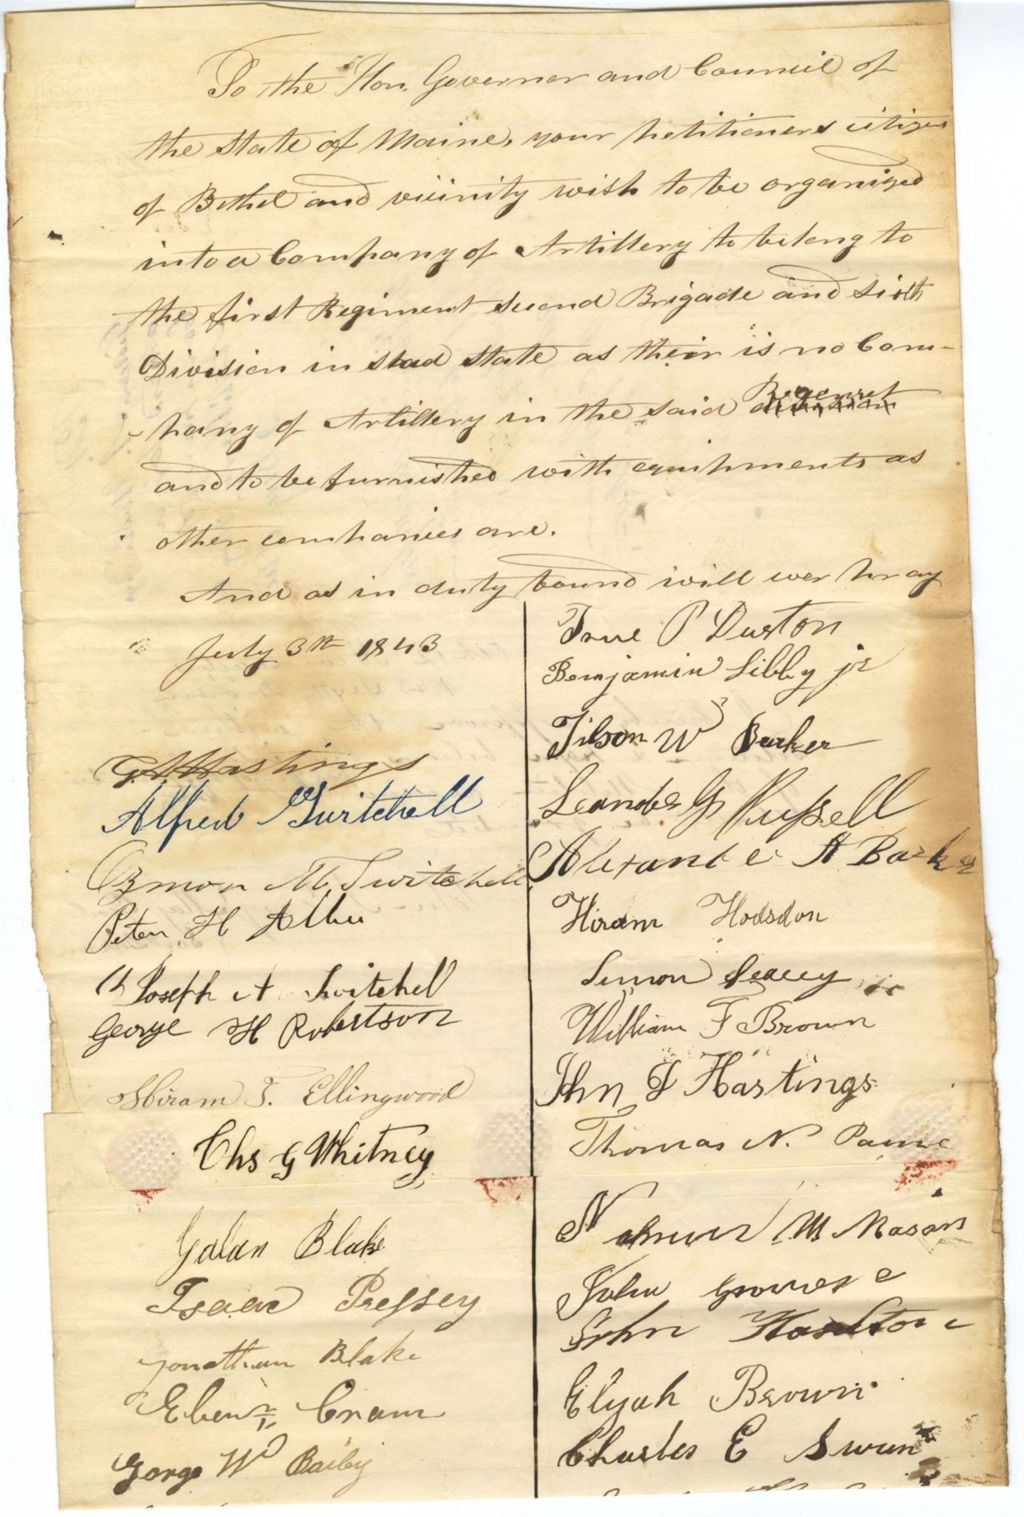 To the Hon. Governor and Council of
the State of Maine, your petitioners citizens
of Bethel and vicinity wish to be organized
into a Company of Artillery to belong to
the first Regiment second Brigade and sixth
Division in said State as their is no Com-
pany of Artillery in the said Regement
and to be furnished with equipments as
other companies are.
And as in duty bound will ever pray
July 3th 1843
G Hastings
Alfred Twitchell
Ozmon M. Twitchell
Peter H Allen
Joseph A Twitchell
George H Robertson
Hiram T. Ellingwood
Chs G Whitney
Galan Blake
Isaac Pressey
Jonathan Blake
Ebenr Cram
Gorge W Bailey
True P Duston
Benjamin Libby jr
Tilson W Barker
Leander G Russell
Alexander A Barker
Hiram Hodsdon
Simon Seavey
William F Brown
John D Hastings
Thomas N. Paine
M Mason
John Grover
John
Elijah Brown
Charles E Swan